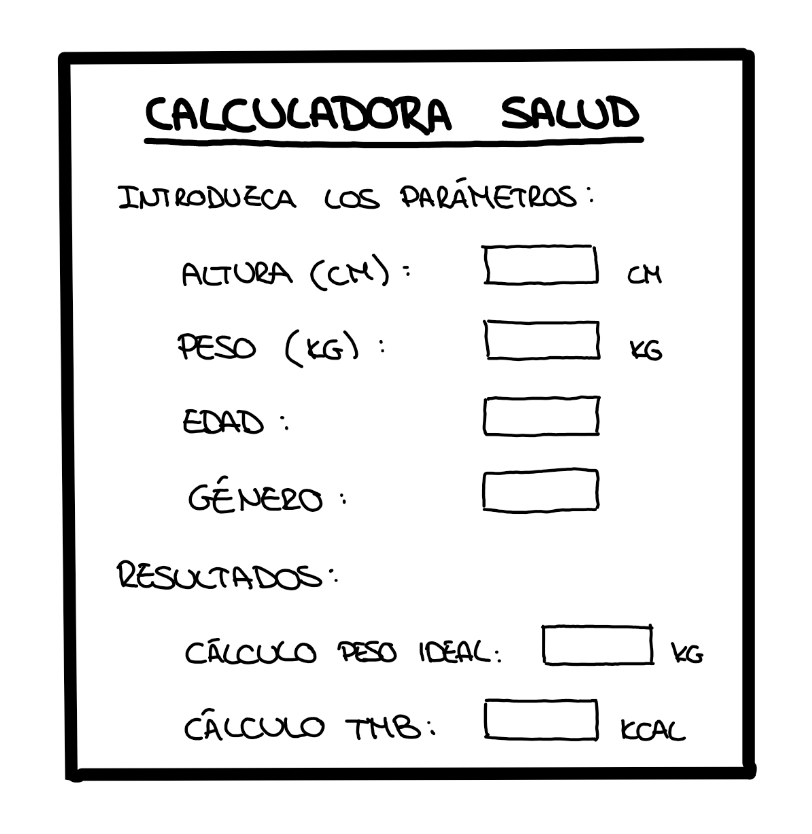 CALCULADORA SALUD
INTRODUZCA LOS PARÁMETROS:
ALTURA (CM): CM
PESO (KG): KG
EDAD:
GÉNERO:
RESULTADOS:
CÁLCULO PESO IDEAL: KG
CÁLCULO TMB: KCAL